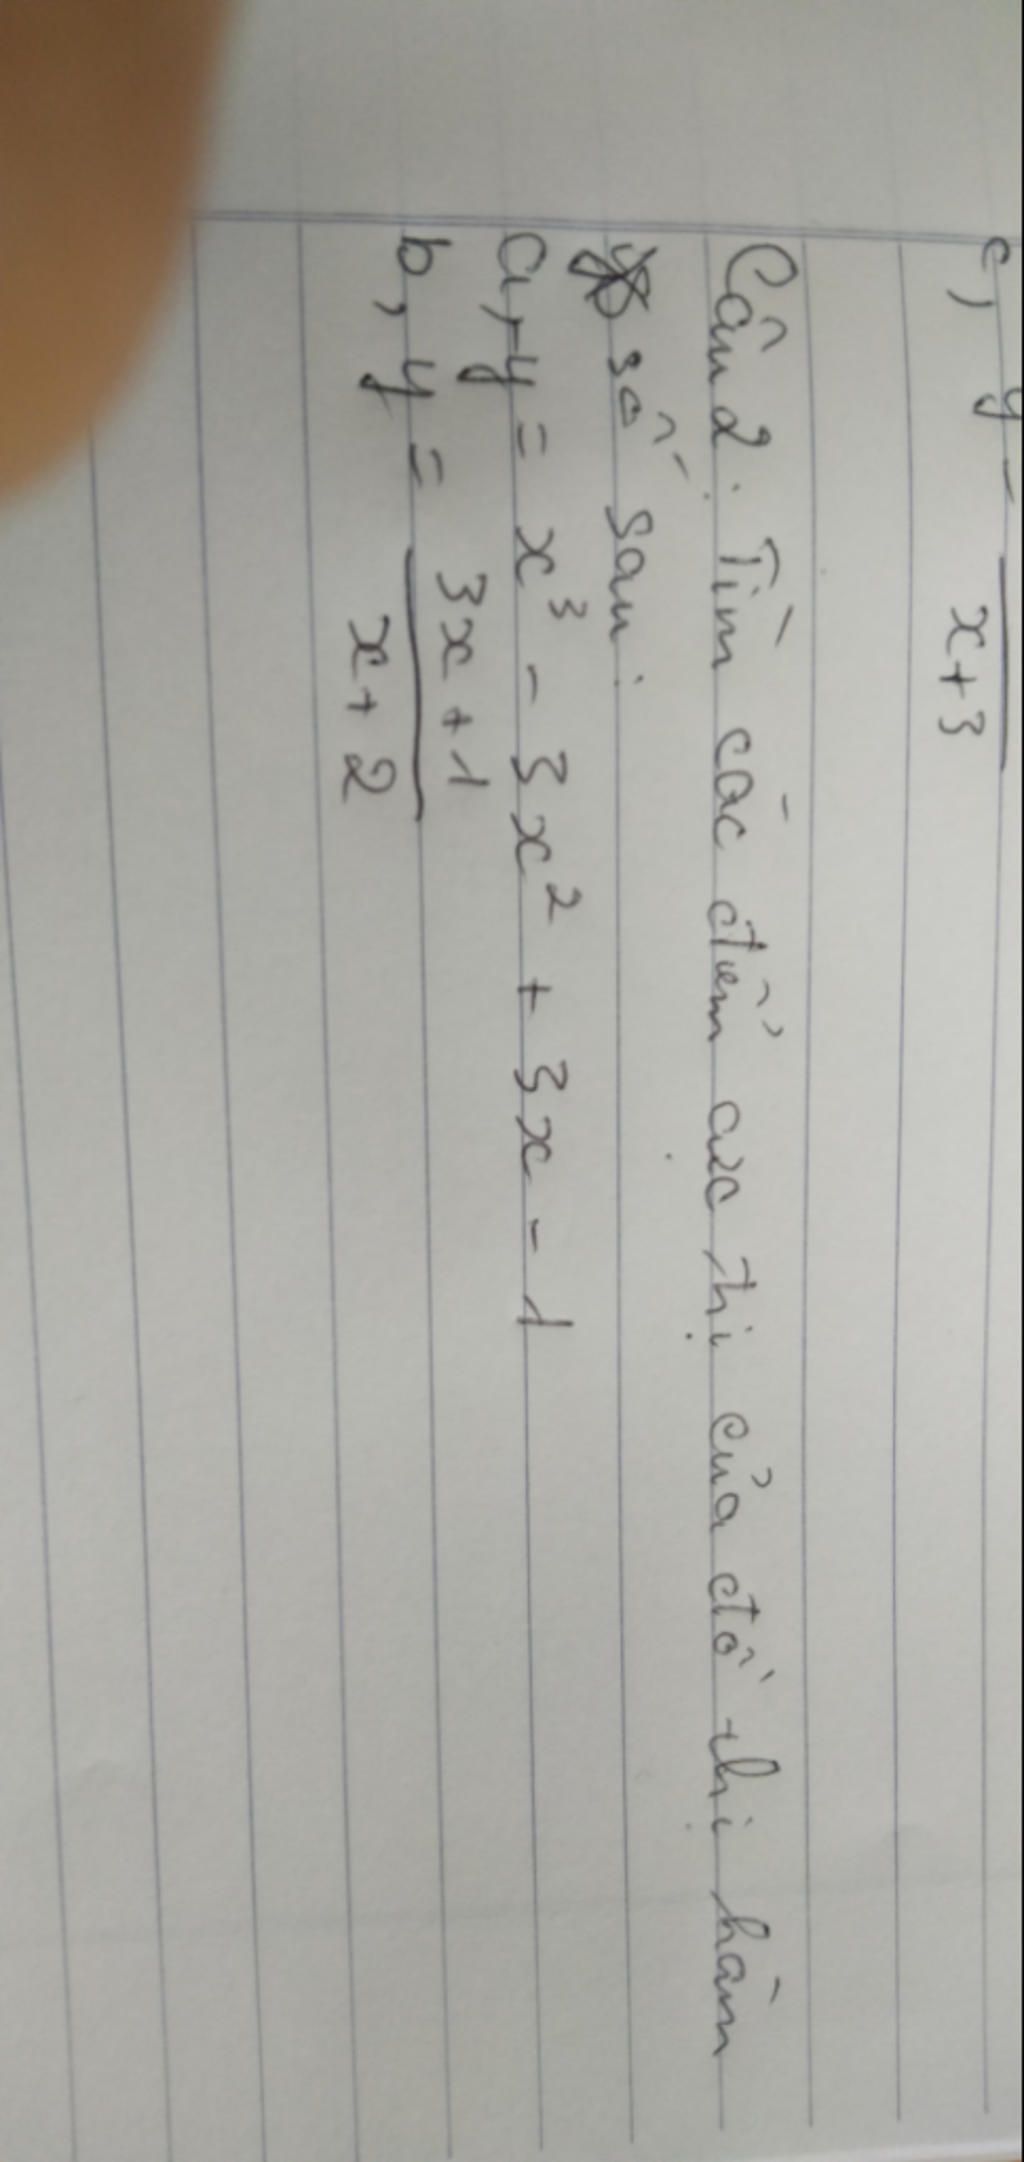 c, y =
x+3
Câu 2: Tìm các điểm cực trị của đồ thị hàm
số sau:
a, y = x³ - 3x² + 3x - 1
b, y = 3x + 1
x + 2